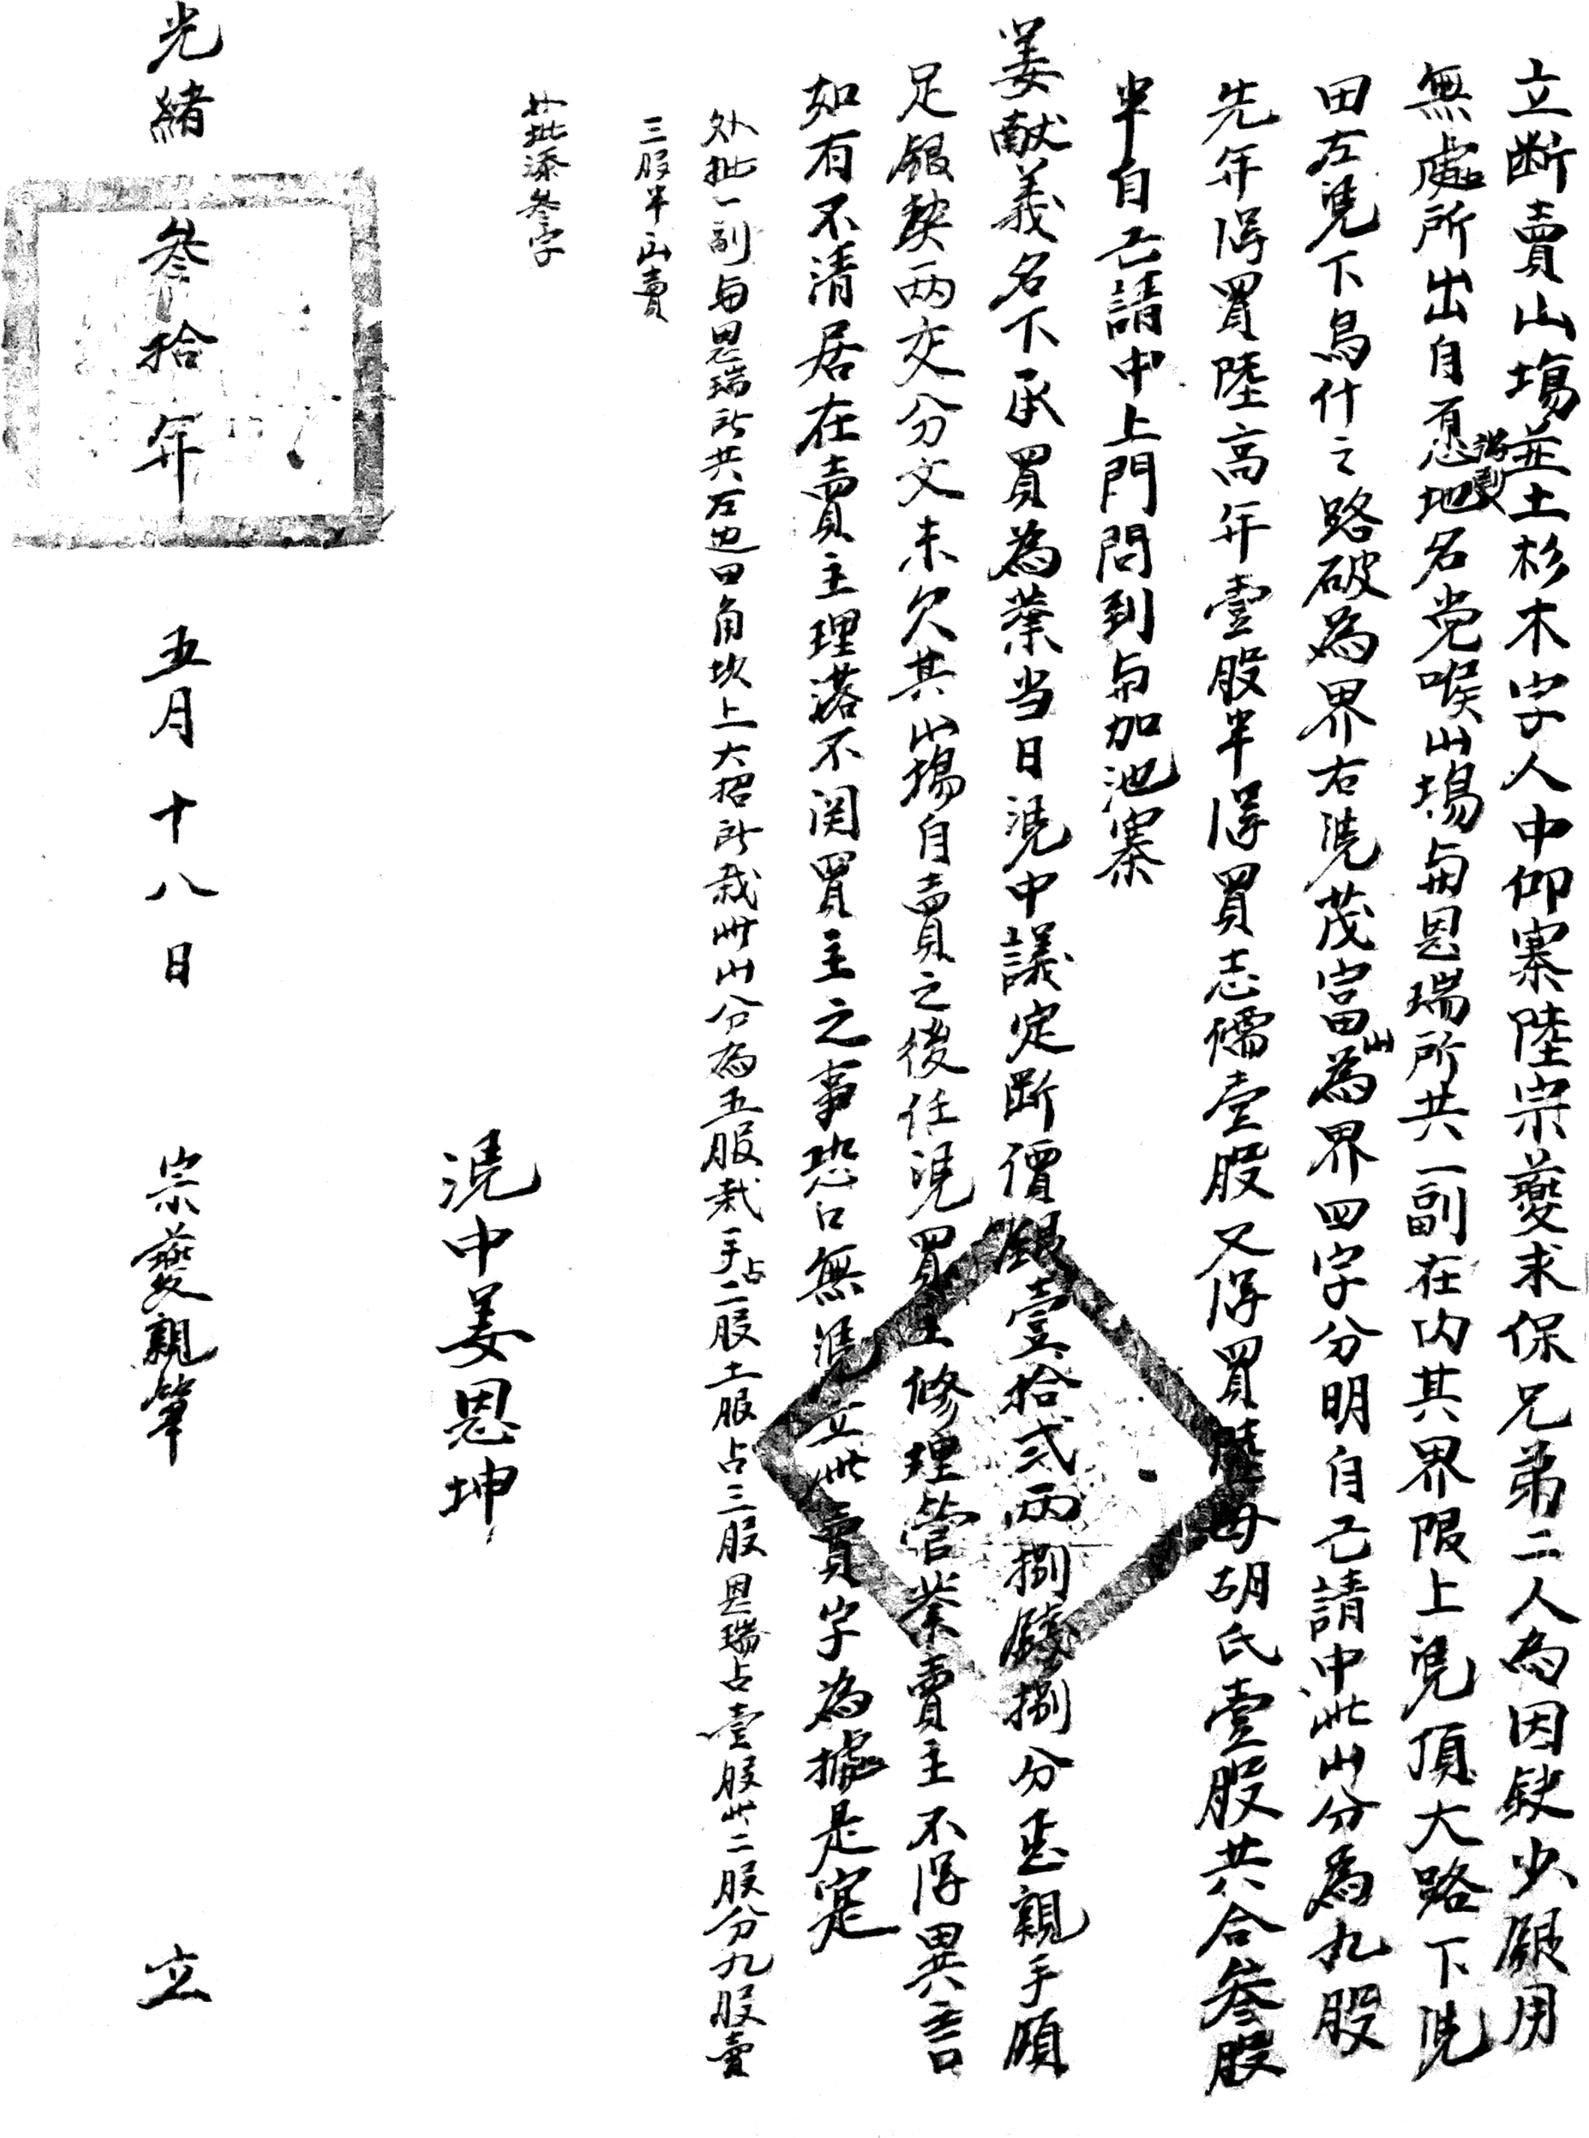 立断賣山場並土杉木字人中仰寨陸宗夔求保兄弟二人為因缺少銀用
無處所出自愿將到地名党喉山場与恩瑞所共一副在内其界限上凴頂大路下凴
田左凴下烏什之路破為界右凴茂富山為界四字分明自己請中此山分為九股
先年得買陸高年壹股半得買志儒壹股又得買陸母胡氏壹股共合叄股
半自己請中上門問到与加池寨
姜献義名下承買為業当日凴中議定断價銀壹拾弍両捌錢捌分正親手領
足銀契両交分文未欠其山塲自賣之後任凴買主修理管業賣主不得異言
如有不清居在賣主理落不関買主之事恐口無凴立此賣字為據是寔
外批一副与恩瑞所共左边田角坎上大招所栽此山分為五股栽手占二股土股占三股恩瑞占壹股此二股分九股賣
三股半出賣
批添叄字
凴中姜恩坤
光緒叄拾年五月十八日 宗夔親筆 立